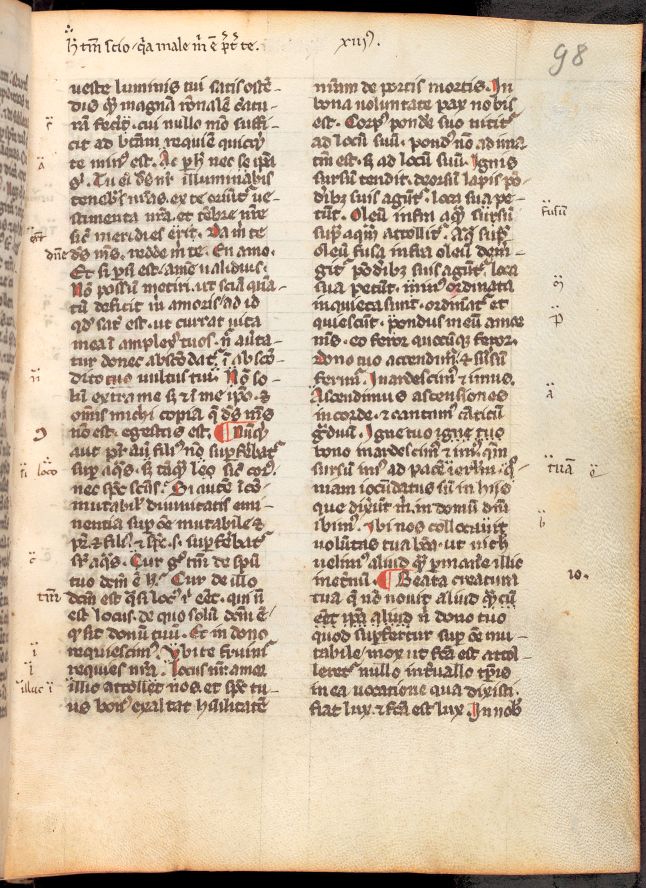 h̄ tm̄ scio · q̇a male m̄ ē p̄t te.
xiij.
98
ueste luminis tui satis ostē-
dis q̃ magnā rōnalē c̄atu-
rā fecis̄ti · cui nullo mō suffi-
cit ad b̄tam requiē quicq̇
te min᷒ est. Ac p̱ h̄ nec se ip̄a
s᷒. Tu ei d̄s nr̄ illuminabis
tenebs̄ nr̄as · ex te oriūt᷑ ue-
stimenta nr̄a. et tēbre nr̄e
sic̄ meridies ērit. Da m̄ te
d̄s m̄s. redde m̄ te. En amo.
Et si ꝑū est · amē ualidius.
Nō possū metiri. ut sciā qua-
tū deficit m̄ amoris ad id
qd̄ sat᷒ est · ut currat uita
mea ī amplex᷒ tuos. n̄ auta-
tur donec abscōdat᷑ ī abscō-
dito tuo uultus tui. Hoc so-
lū extra me s; & ī me ip̄o. &
omīs michi copia q̄ d̄s m̄s
nō est. egestas est. ¶ Nūq̇
aut pr̄ aū fili᷒ nō suꝑfer̄bat᷑
suꝑ aq̄s. s; tāq̇ loco sic̄ cor᷒.
nec sp̄c scūs. Si autē īcō-
mutabil᷒ diuinitatis emi-
nentia suꝑ oē mutabile &
pr̄ & fili᷒. & sp̄c. s. suꝑfer̄bat᷑
sr̄ aq̄s. Cur g̊ tm̄ de sp̄u
tuo dcm̄ ē h̄. Cur de illo
dcm̄ est q̄si loc᷒ ī eēt. qui n̄
est locus. de quo solū dcm̄ ē
q̇ sit donū tuū. Et in dono
requiescim᷒. Ibi te fruim᷒
requies nr̄a. Locus nr̄ amor
illuc attollet nos. et sp̄c tu-
us bon᷒ exaltat hūilitatē
nr̄am de portis mortis. In
bona uoluntate pax nobis
est. Corp᷒ ponde suo nitit᷑
ad locū suū. pond᷒ nō ad ima
tm̄ est. s; ad locū suū. Ignis
sursū tendit. deorsū lapis pō-
drib; suis agūt᷑. loca sua pe-
tūt. Oleū infra aq̄ sursū
suꝑ aquā attollit᷑. Aq̄ suꝑ
oleū fusa infra oleū dem̄-
git᷑ pōdib; suis agūt᷑. loca
sua petūt. min᷒ ordinata
inquieta sunt. ordinant᷑ et
quiescūt. pondus meū amor
m̄s. eo feror quocūq; feror.
Dono tuo accendim᷑ & sursū
ferim᷑. Inardescim᷒ & imus.
Ascendimus ascensiones
in corde. & cantam᷒ cāticū
g̊duū. Igne tuo igne tuo
bono inardescim᷒ & im᷒. qm̄
sursū im᷒ ad pacē ierlm̄. q̄-
niam iocūdatus sū in hiis
que dixr̄ūt m̄. in domū dnī
ibim᷒. Ibi nos collocauit
volūtas tua bōa. ut nich̄
uelim᷒ aliud q̃ ꝑmanē illic
inetnū. ¶ Beata creatura
tua q̄ nō nouit aliud q̃ cū
eēt ip̄a aliud n̄ dono tuo
quod suꝑfertur suꝑ oē mu-
tabile. mox ut fc̄a est attol-
leret᷑ nullo int̄uallo tp̄ris
in ea uocatione qua dixisti.
fiat lux. & fc̄a est lux. In nob̄
c̄
a
dn̄e
n̄
si loco
c̄
tm̄
i
l
illuc i
fusū
ꝑ
a
tuā
b
10.